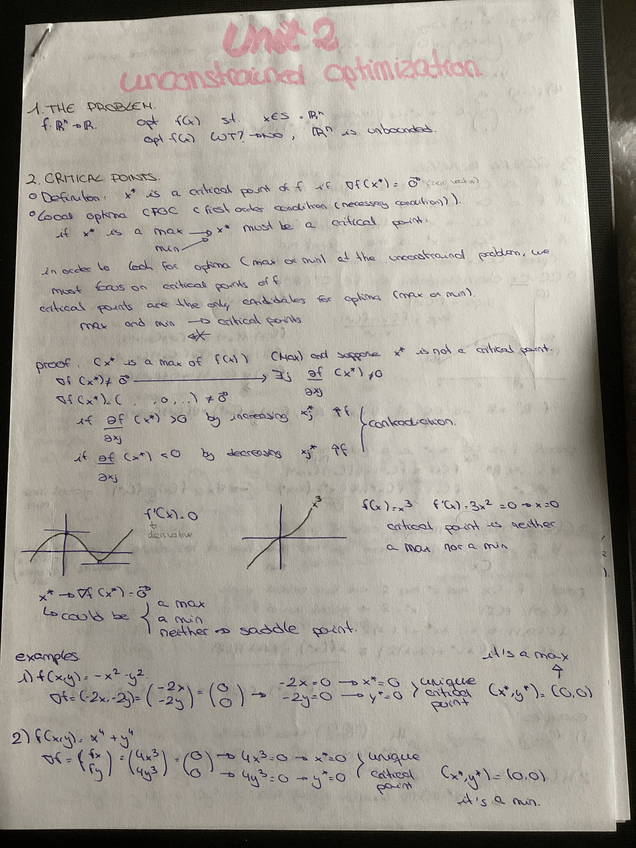 Unit 2
unconstrained optimization
1. THE PROBLEM.
f: ℝⁿ → ℝ. opt f(x) st. x∈S = ℝⁿ
opt f(x) WT? → NO, ℝⁿ is unbounded.
2. CRITICAL POINTS.
○ Definition: x* is a critical point of f if ∇f(x*) = 0⃗ (zero vector)
○ Local optima CPOC (first order condition (necessary condition)).
if x* is a max → x* must be a critical point.
min
in order to look for optima (max or min) of the unconstrained problem, we
must focus on critical points of f
critical points are the only candidates for optima (max or min).
max and min → critical points
proof. (x* is a max of f(x)) (Max) and suppose x* is not a critical point.
∇f (x*) ≠ 0⃗ → ∃j ∂f/∂xj (x*) ≠ 0
∇f (x*) = ( . , 0, ..) ≠ 0⃗
if ∂f/∂xj (x*) > 0 by increasing xj* ↑f
contradiction.
if ∂f/∂xj (x*) < 0 by decreasing xj* ↑f
f'(x) = 0
derivative
x³
f(x) = x³ f'(x) = 3x² = 0 → x = 0
critical point is neither
a max nor a min
x* → ∇f (x*) = 0⃗
↳ could be { a max
a min
neither ⇒ saddle point.
examples.
it's a max
1) f(x,y) = -x² - y².
∇f = (-2x, -2y) = (-2x -2y) = (0 0) → -2x = 0 → x* = 0 -2y = 0 → y* = 0 } unique critical point (x*, y*) = (0,0)
2) f(x,y) = x⁴ + y⁴
∇f = (fx fy) = (4x³ 4y³) = (0 0) → 4x³ = 0 → x* = 0 → 4y³ = 0 → y* = 0 } unique critical point (x*, y*) = (0,0)
it's a min.